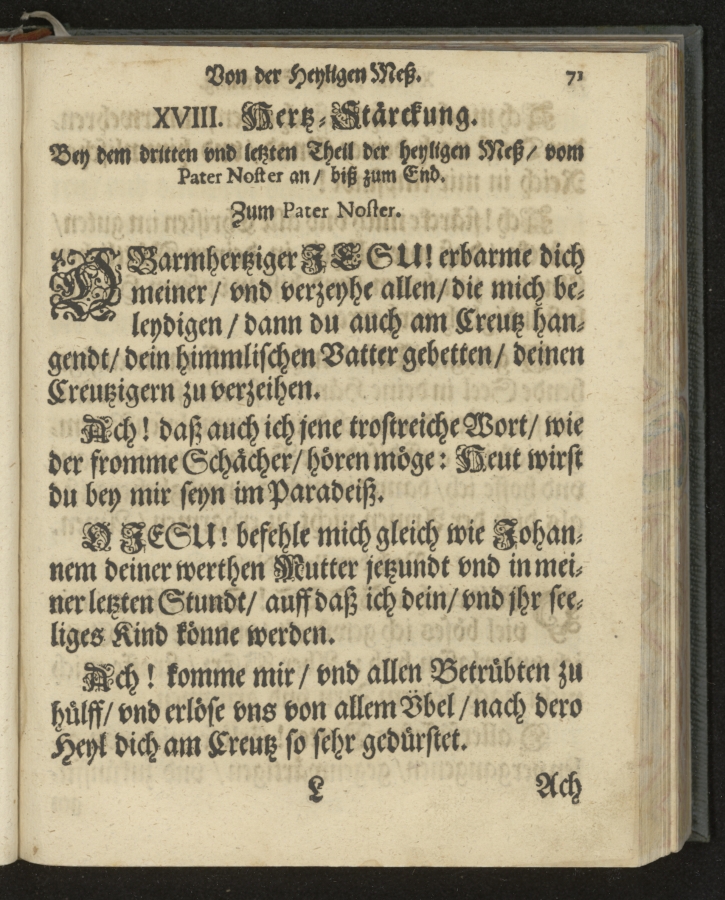 Von der Heyligen Meß. 71
XVIII. Hertz-Stärckung.
Bey dem dritten vnd letzten Theil der heyligen Meß/ vom
Pater Noster an/ biß zum End.
Zum Pater Noster.
O Barmhertziger JESU! erbarme dich
meiner/ vnd verzeyhe allen/ die mich be-
leydigen/ dann du auch am Creutz han-
gendt/ dein himmlischen Vatter gebetten/ deinen
Creutzigern zu verzeihen.
Ach! daß auch ich jene trostreiche Wort/ wie
der fromme Schächer/ hören möge: Heut wirst
du bey mir seyn im Paradeiß.
O JESU! befehle mich gleich wie Johan-
nem deiner werthen Mutter jetzundt vnd in mei-
ner letzten Stundt/ auff daß ich dein/ vnd jhr see-
liges Kind könne werden.
Ach! komme mir/ vnd allen Betrübten zu
hülff/ vnd erlöse vns von allem Übel/ nach dero
Heyl dich am Creutz so sehr gedürstet.
L Ach